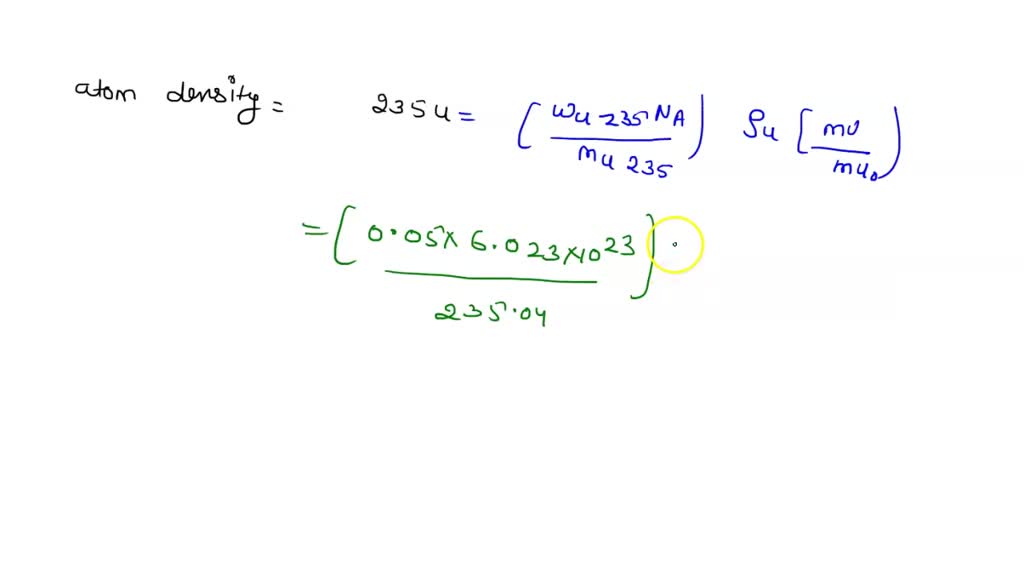 atom density = 235 u = [ Wu-235 NA / Mu 235 ) ρu [ mu / muo )
= [ 0.05 x 6.023 x 10^23 / 235.04 ] .